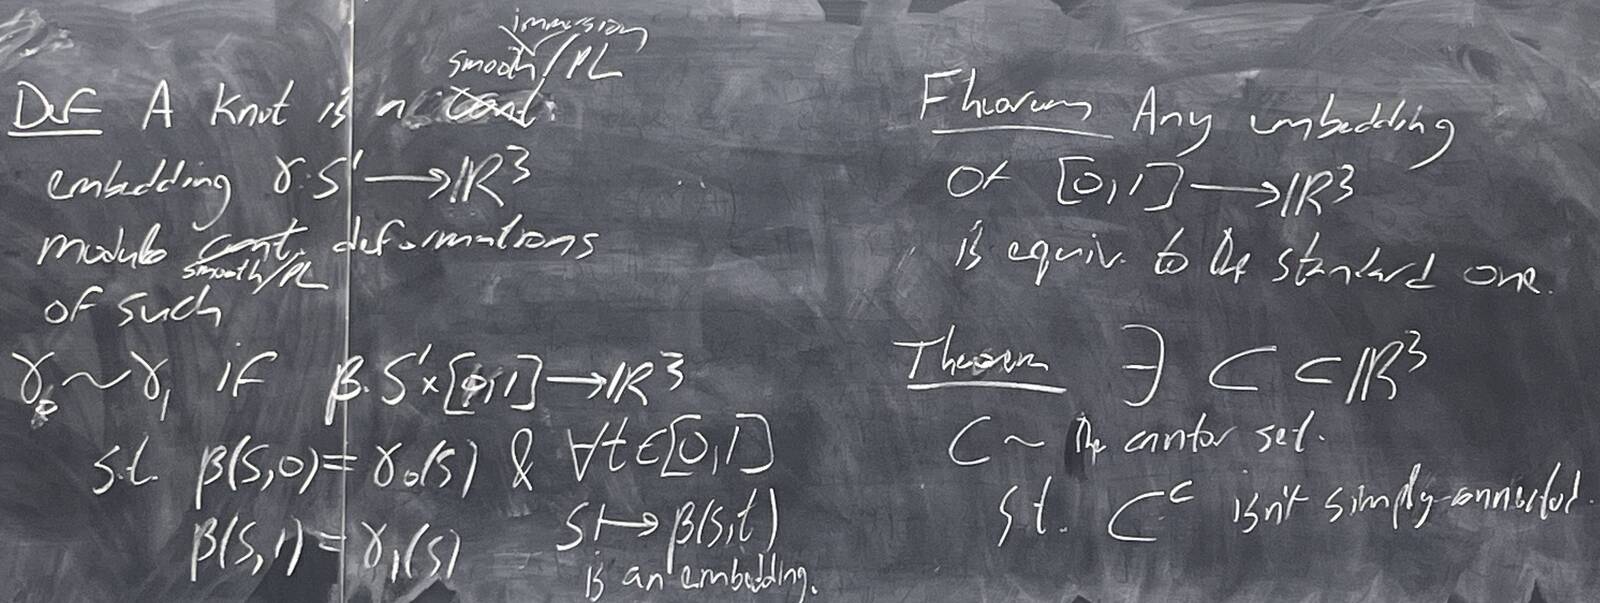 immersion
smooth/PL
Def A knot is a cont.
embedding γ: S¹ → ℝ³
modulo cont. deformations
smooth/PL
of such
γ₀ ~ γ₁ if β: S¹×[0,1] → ℝ³
s.t. β(s,0) = γ₀(s) & ∀t∈[0,1]
β(s,1) = γ₁(s) s ↦ β(s,t)
is an embedding.
Fheorem Any embedding
of [0,1] → ℝ³
is equiv. to the standard one.
Theorem ∃ C ⊂ ℝ³
C ~ the cantor set.
s.t. Cᶜ isn't simply-connected.